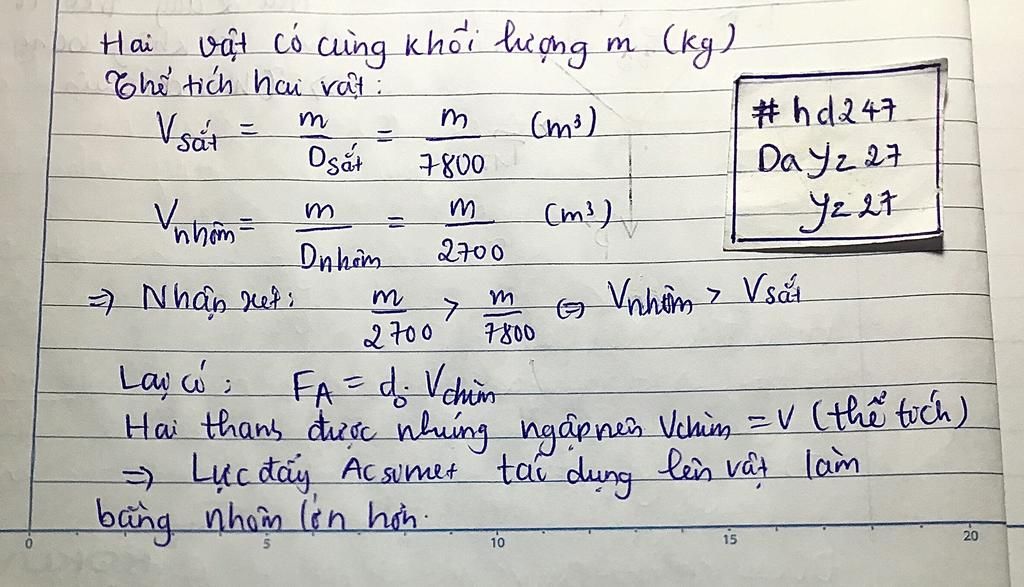 Hai vật có cùng khối lượng m (kg)
Thể tích hai vật:
V sắt = m / D sắt = m / 7800 (m³)
V nhôm = m / D nhôm = m / 2700 (m³)
=> Nhận xét: m / 2700 > m / 7800 <=> V nhôm > V sắt
Lại có: FA = d₀. V chìm
Hai thanh được nhúng ngập nên Vchìm = V (thể tích)
=> Lực đẩy Acsimet tác dụng lên vật làm
bằng nhôm lớn hơn.
#hd247
Dayz27
yz27
0 5 10 15 20